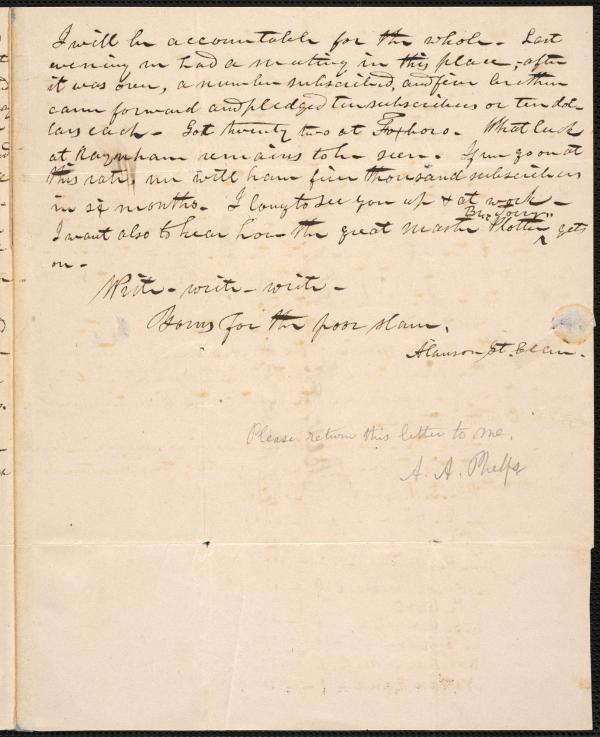 I will be accountable for the whole. Last
evening we had a meeting in this place, after
it was over, a number subscribed, and five brethren
came forward and pledged ten subscribers or ten dol-
lars each. Got twenty two at Foxboro. What luck
at Raynham remains to be seen. If we go on at
this rate, we will have five thousand subscribers
in six months. I long to see you up & at work.
I want also to hear how the great master Plotter "Br. Young" gets
on.
Write - write - write -
Yours for the poor slave,
Alanson St. Clair.
Please return this letter to me.
A. A. Phelps